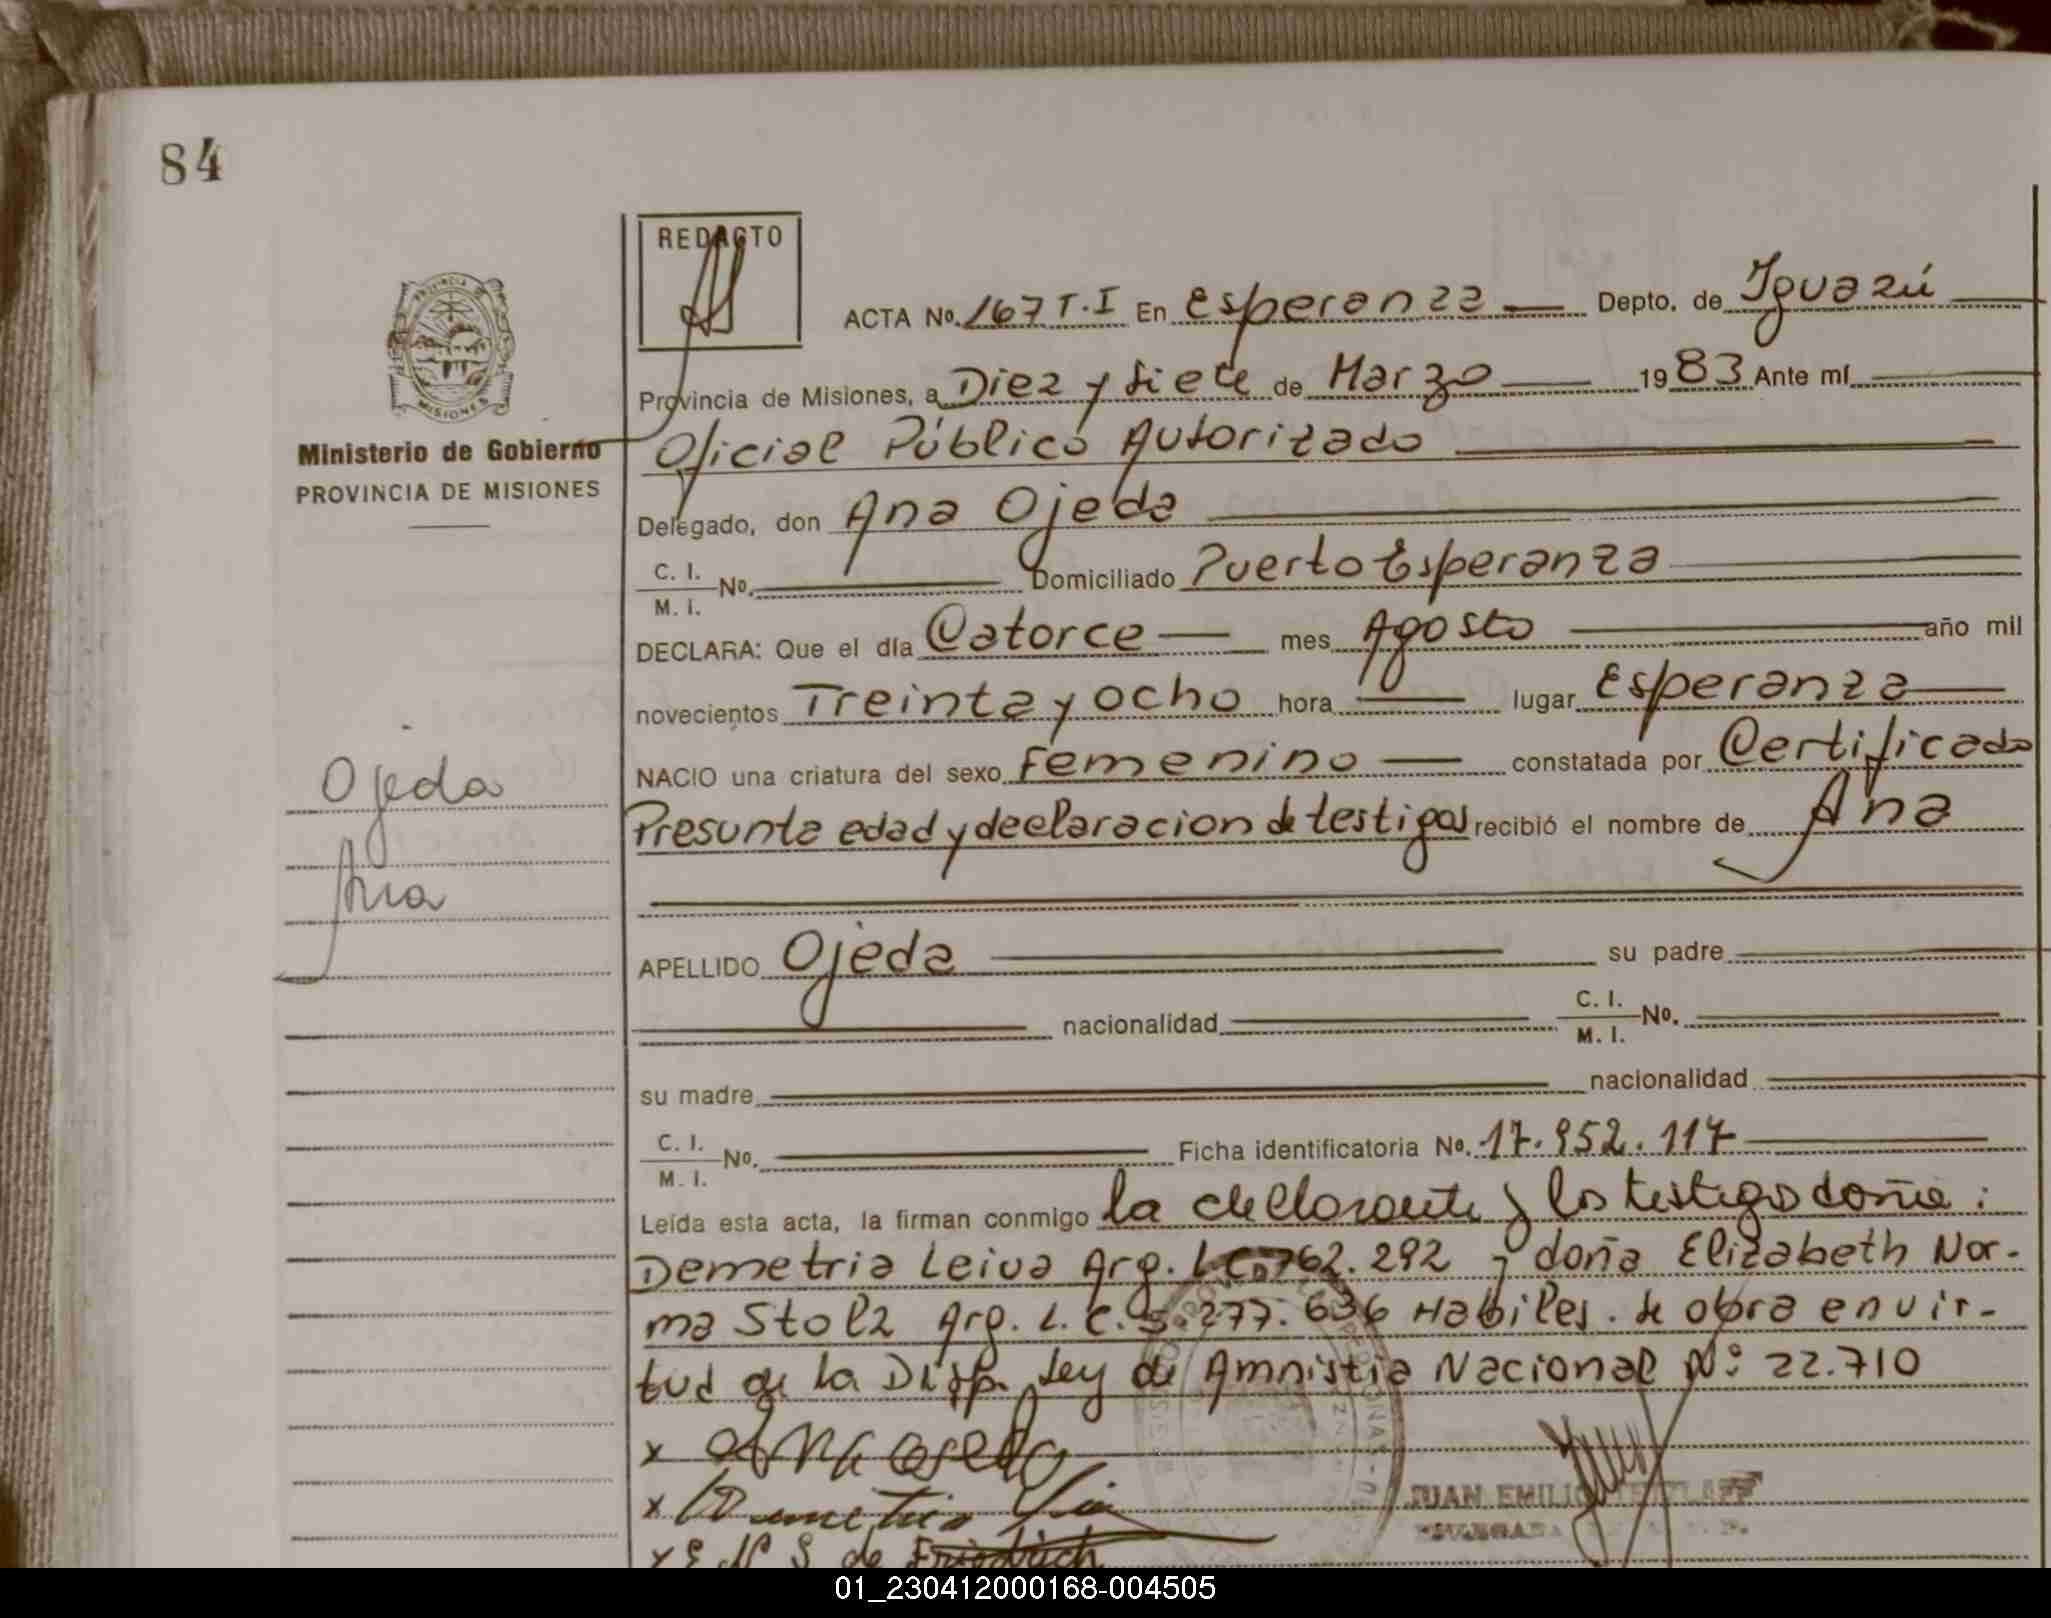 84
REDACTO
ACTA Nº. 167 T.I En Esperanza Depto. de Iguazú
Provincia de Misiones, a Diez y Siete de Marzo 1983 Ante mí
Ministerio de Gobierno
PROVINCIA DE MISIONES
Oficial Público Autorizado
Delegado, don Ana Ojeda
C. I.
M. I. Nº. Domiciliado Puerto Esperanza
DECLARA: Que el día Catorce mes Agosto año mil
novecientos Treinta y ocho hora lugar Esperanza
NACIO una criatura del sexo Femenino constatada por Certificado
Presunta edad y declaracion de testigos recibió el nombre de Ana
Ojeda
Ana
APELLIDO Ojeda su padre
nacionalidad C. I.
M. I. Nº.
su madre nacionalidad
C. I.
M. I. Nº. Ficha identificatoria Nº. 17.952.117
Leída esta acta, la firman conmigo la declarante y los testigos doña:
Demetria Leiva Arg. L.C. 762.292 y doña Elizabeth Nor-
ma Stolz Arg. L.C. 5.277.636 Habiles. de obra en vir-
tud de la Disp. Ley de Amnistia Nacional Nº 22.710
x Ana Ojeda
x Demetria
x E. N. S. de Friedrich
JUAN EMILIO
01_230412000168-004505